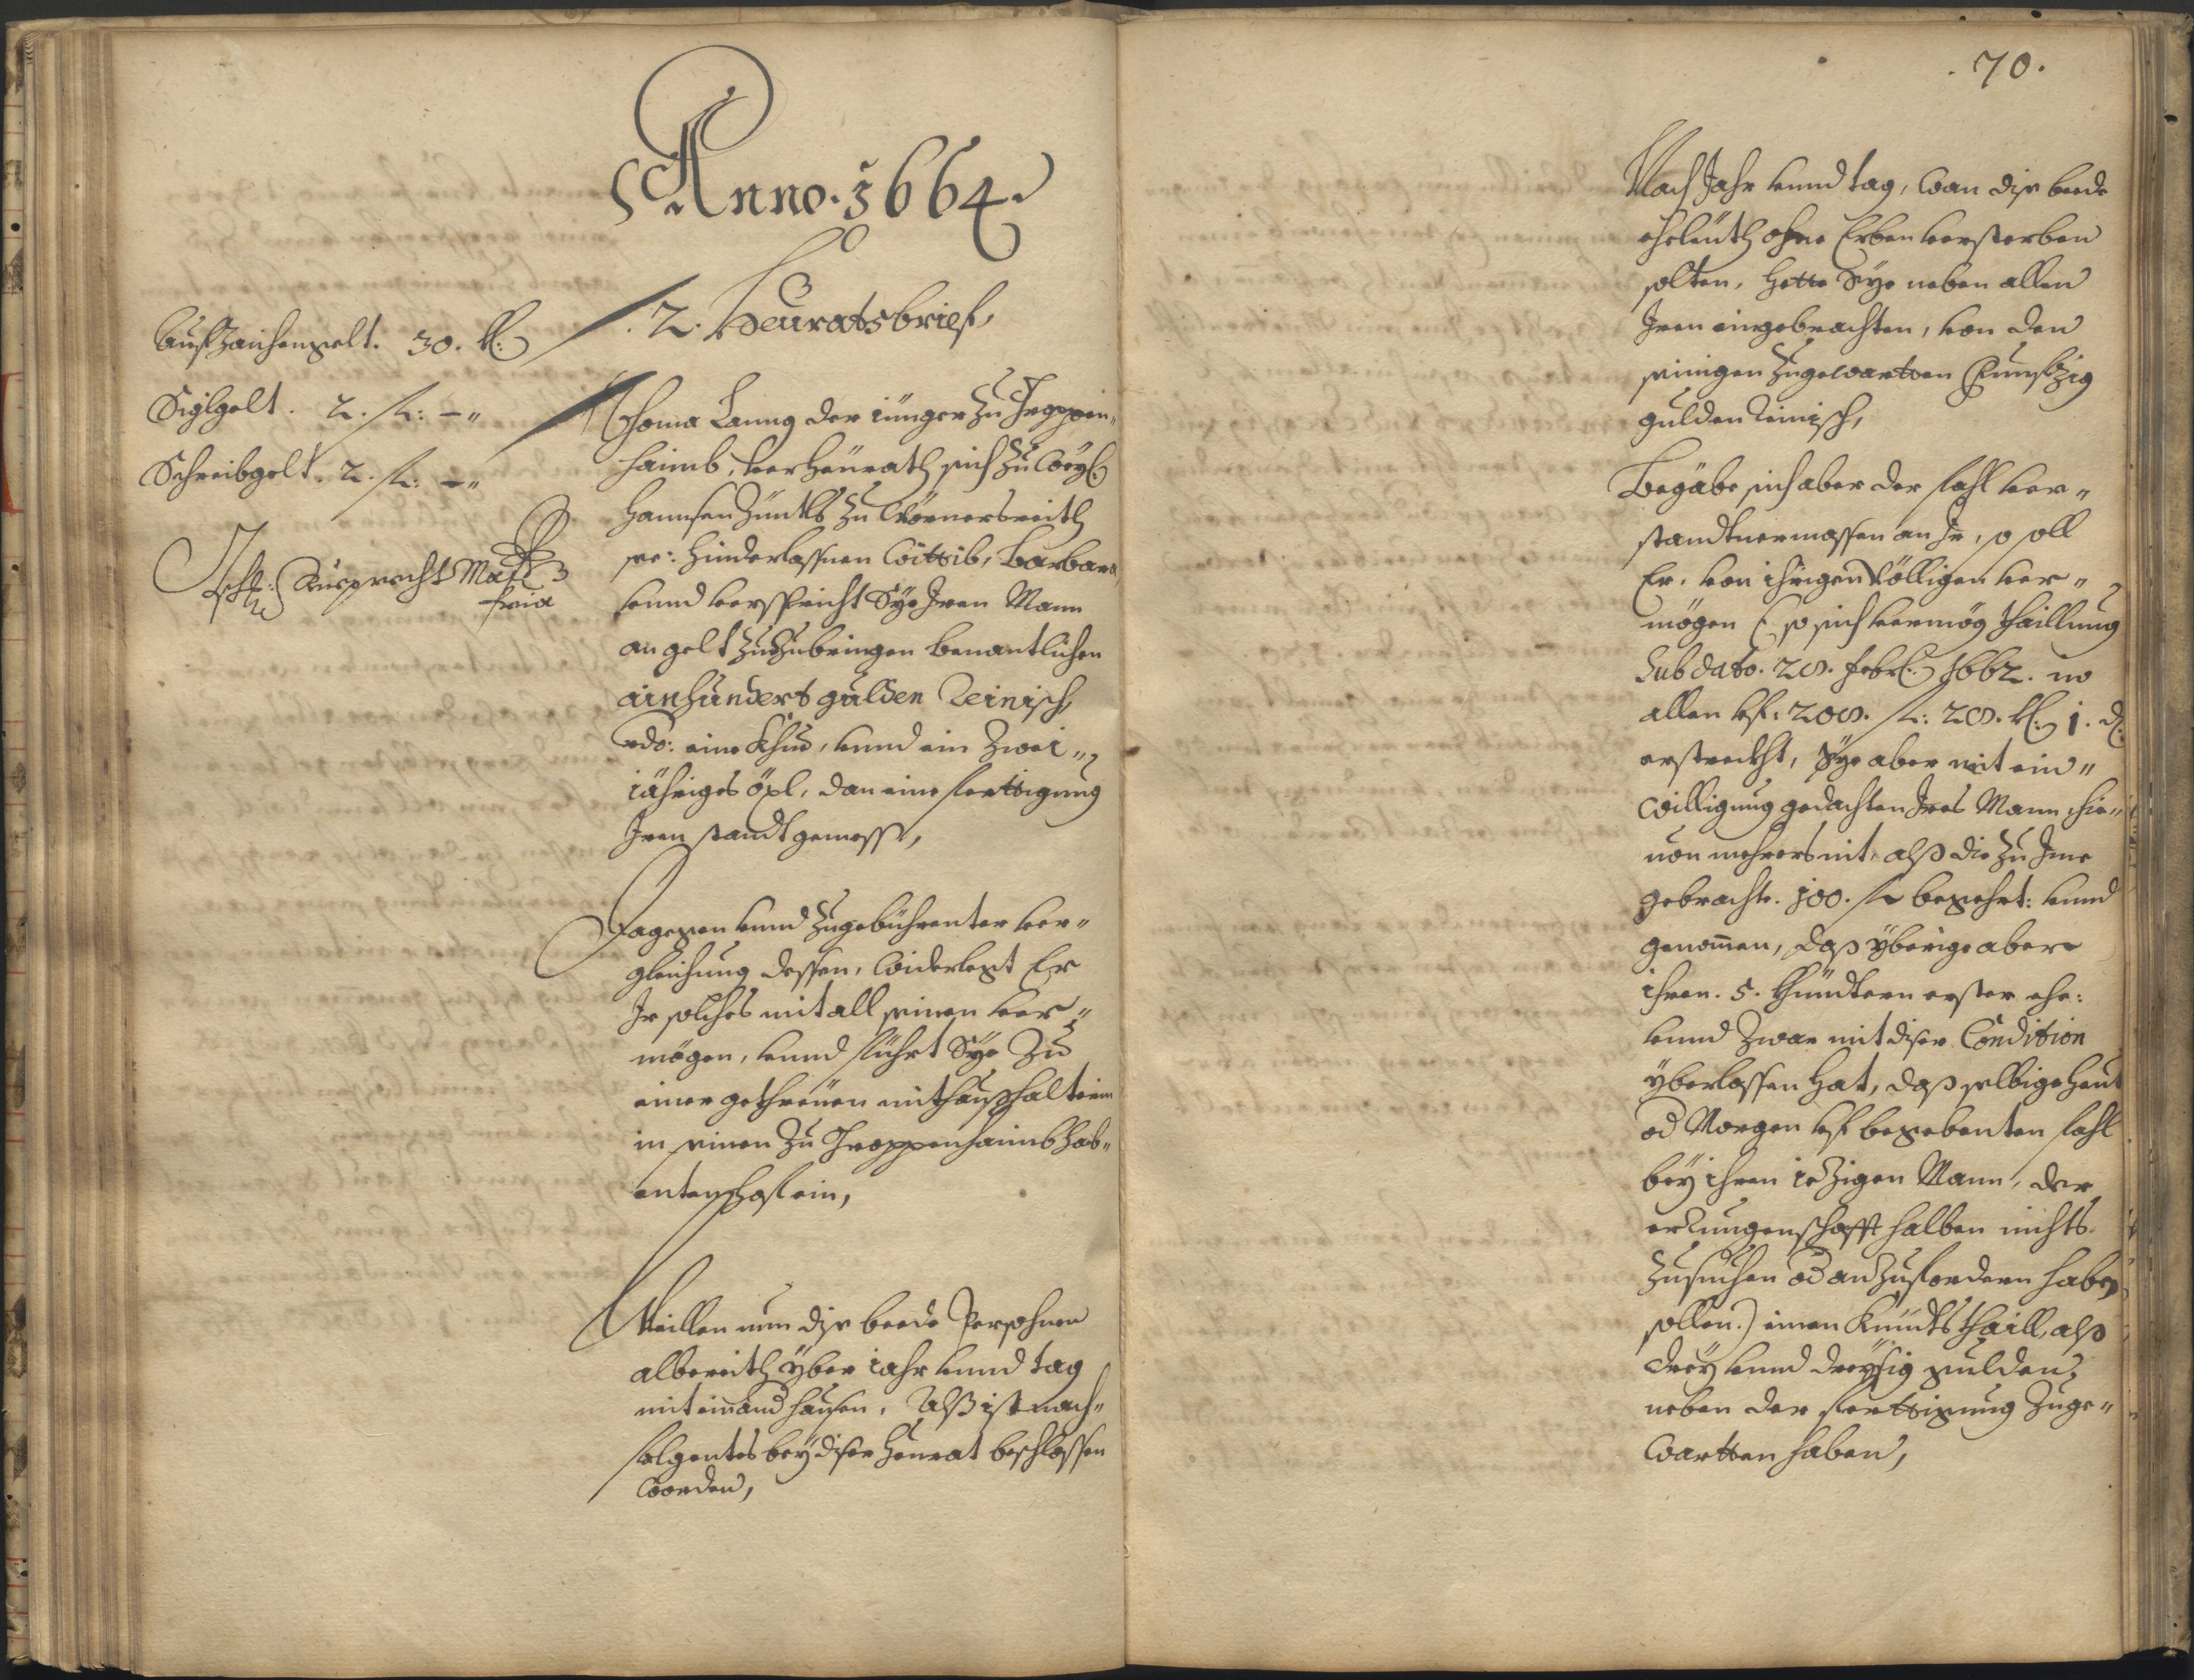 Anno. 1664.
2. Heuratsbrief,
Aufzaichengelt. 30. kr:
Siglgelt. 2. fl: -"
Schreibgelt. 2. fl: -"
Thoma Lanng der iünger zu Treppen"
haimb, verheürath sich zu weyl:
Hannsen zu Wörnersreith
see: hinderlassnen Wittib, Barbara
vnnd verspricht Sye Iren Mann
an gelt zuzubringen benantlichen
ainhundert gulden Reinisch,
edo: eine Khue, vnnd ein Zwei"
iähriges öxl, dan eine Ferttigung
Iren standt gemess,
Dagegen vnnd zu gebührenter ver"
gleichung dessen, widerlegt Er
Ir solches mit all seinen ver"
mögen, vnnd führt Sye zu
einer gethreuen mithaußhalterin
in seinen zu Treppenhaimb hab"
enten hof ein,
Weillen nun dise beede Persohnen
albereith yber iahr vnnd tag
miteinand hausen, Alß ist nach"
folgentes bey diser Heurat beschlossen
worden,
70.
Nach Jahr vnnd tag, wan dise beede
eheleüth ohne Erben versterben
solten, hette Sye neben allen
Iren eingebrachten, von den
seinigen zugewartten Funfzig
gulden Reinisch,
Begäbe sich aber der fahl ver"
standtnermassen an Ir, so soll
Er, von ihrigen völligen ver"
mögen (so sich vermög thaillung
Sub dato. 20. Febr: 1662. in
allen vf. 200. fl: 20. kr: 1. d:
erstreckht, Sye aber mit ein"
willigung gedachten Ires Mann hie"
uon mehrers nit, alß die zu Ime
gebrachte. 100. fl begehrt: vnnd
genommen, daß yberige aber
ihren. 5. Kündtern erster ehe:
vnnd zwar mit diser Condition
yberlassen hat, daß selbige heut
od Morgen vf begebenten fahl
bey ihren iezigen Mann, der
errungenschafft halben nichts
zusuechen od anzufordern haben
sollen.) einen Kündtsthaill, alß
drey vnnd dreyssig gulden,
neben der ferttigung zuge"
wartten haben,